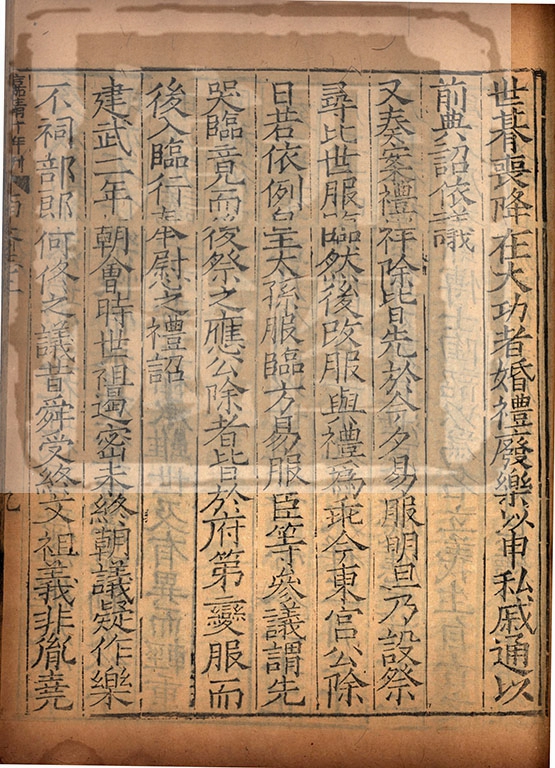 世朞喪降在大功者婚禮廢樂以申私戚通以
前典詔依議
又奏案禮祥除皆先於今夕易服明旦乃設祭
尋比世服臨然後改服與禮為乖今東宮公除
日若依例皇太孫服臨方易服臣等參議謂先
哭臨竟而後祭之應公除者皆於府第變服而
後入臨行奉慰之禮詔
建武二年朝會時世祖遏密未終朝議疑作樂
不祠部郎何佟之議昔舜受終文祖義非胤堯
嘉靖十年刊
九